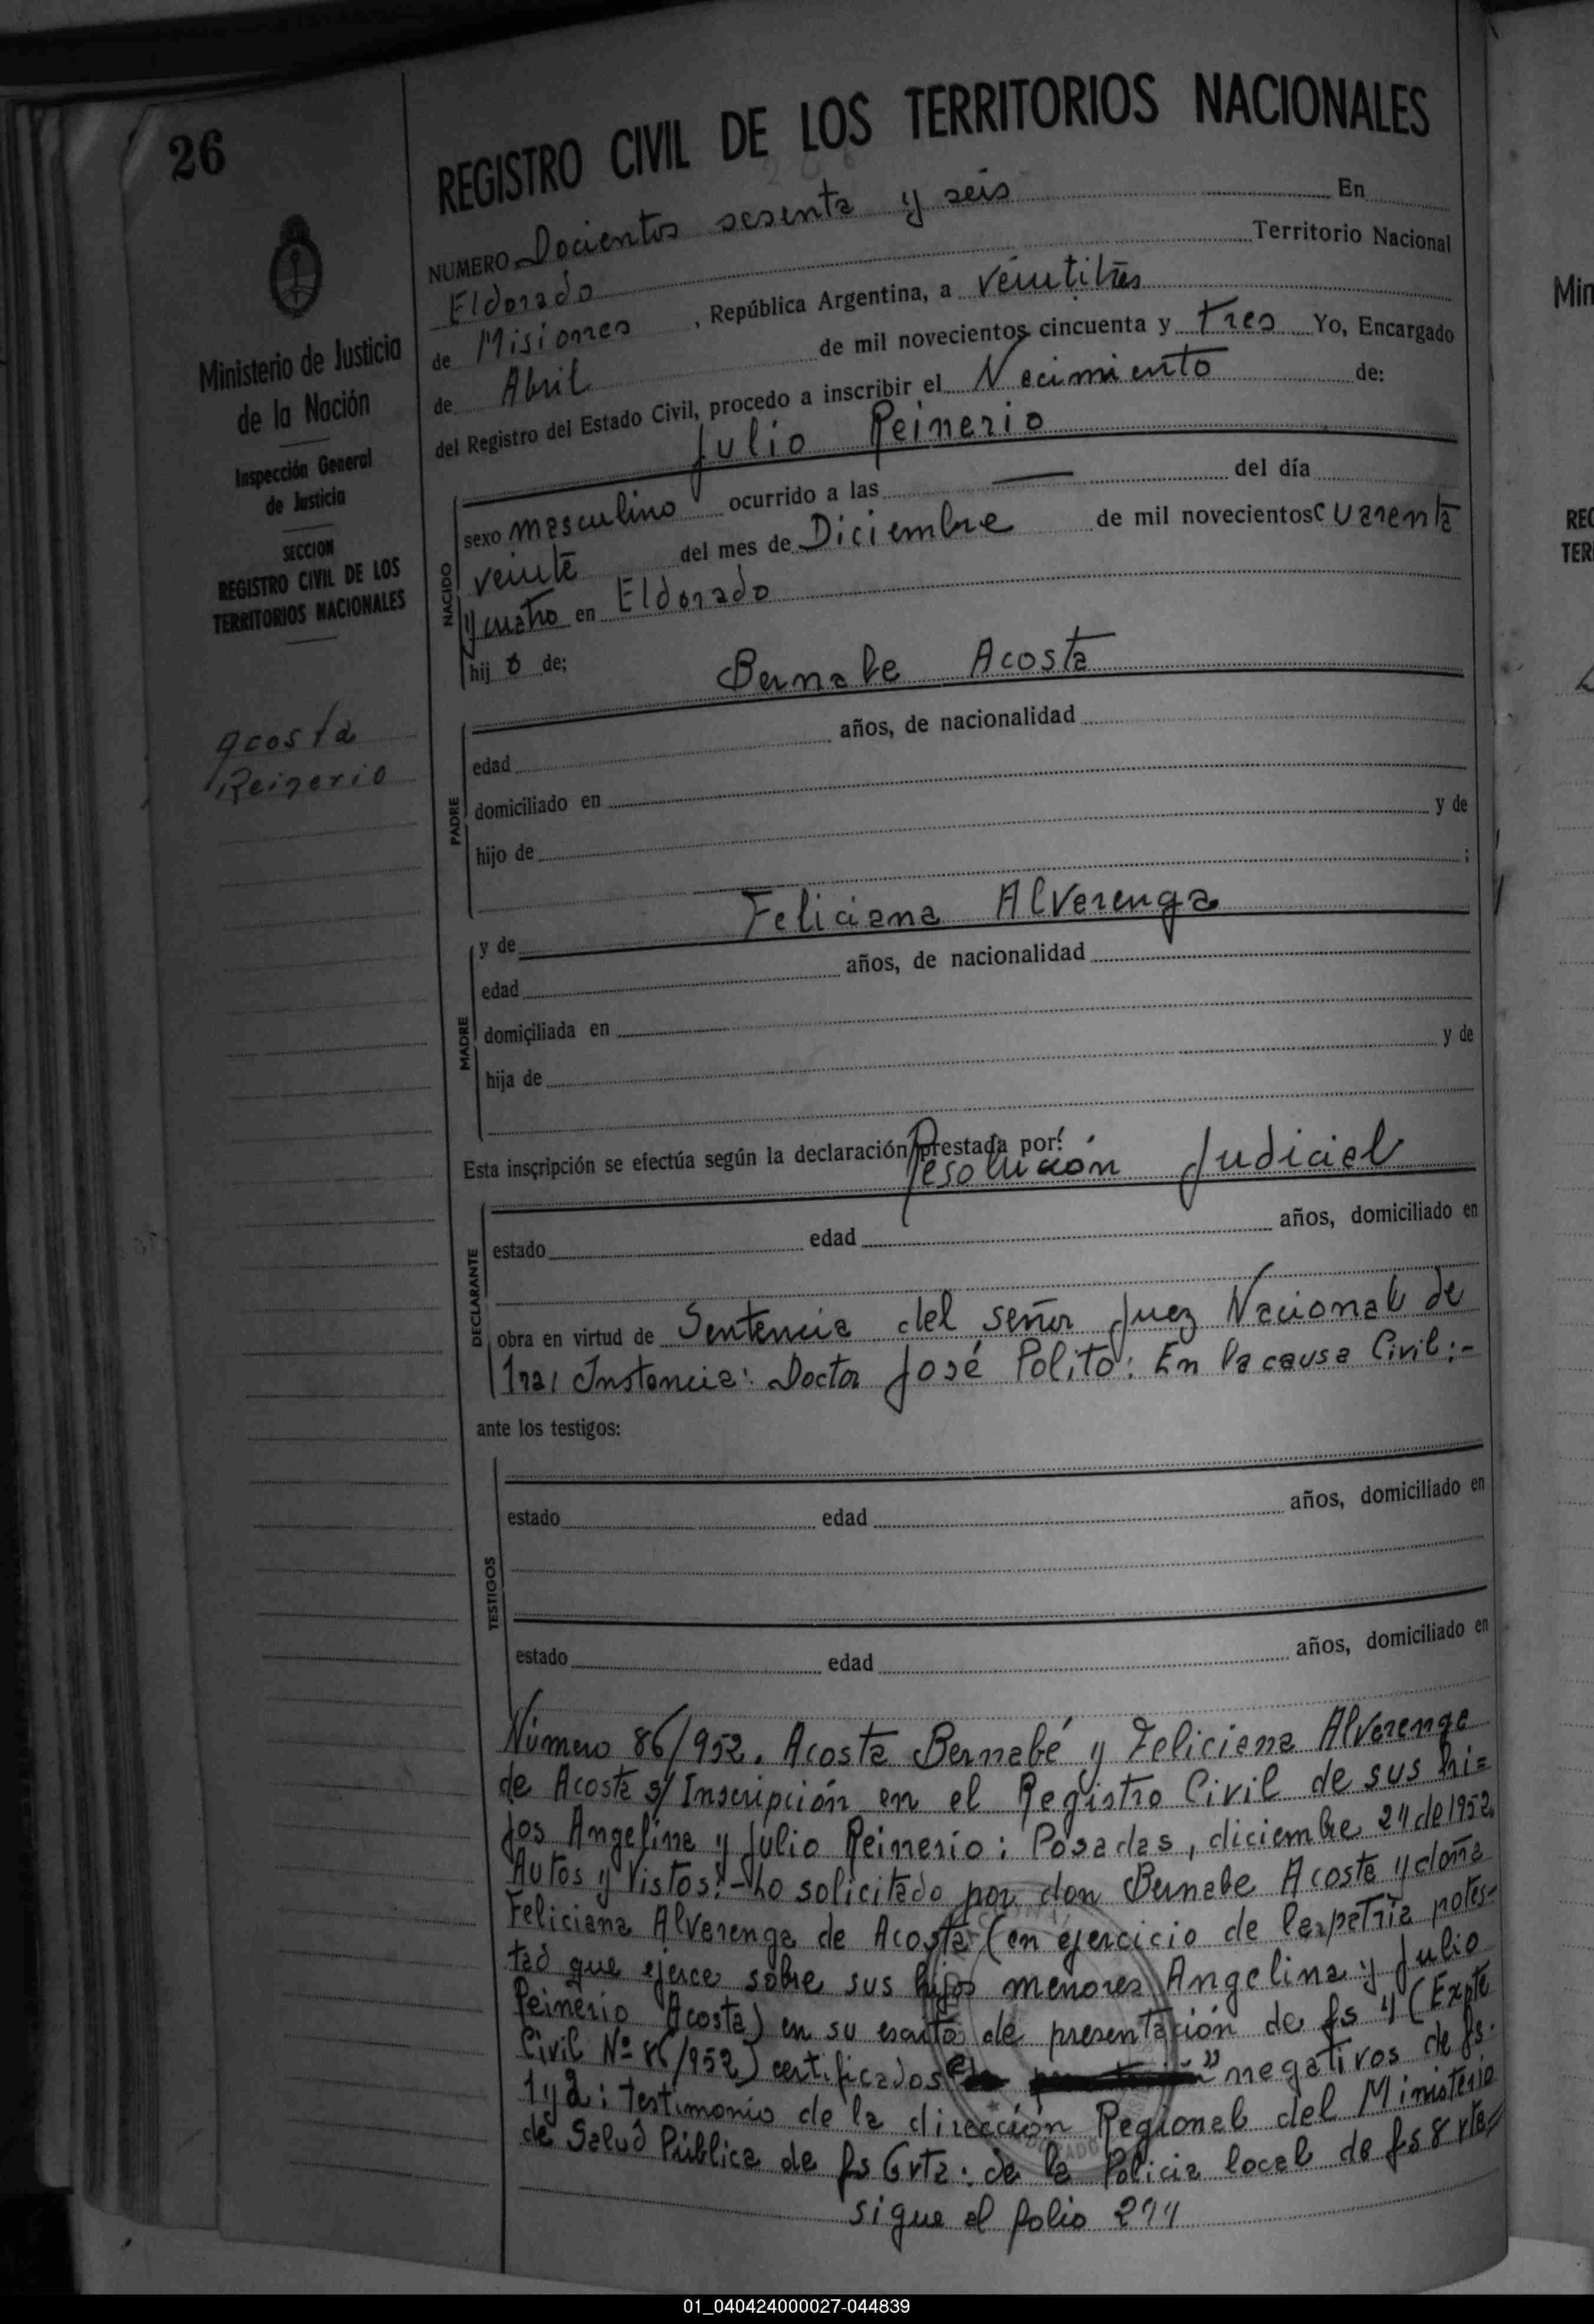 26
REGISTRO CIVIL DE LOS TERRITORIOS NACIONALES
Ministerio de Justicia
de la Nación
Inspección General
de Justicia
SECCION
REGISTRO CIVIL DE LOS
TERRITORIOS NACIONALES
Acosta
Reinerio
NUMERO Docientos sesenta y seis En
Eldorado Territorio Nacional
de Misiones, República Argentina, a veintitres
de Abril de mil novecientos cincuenta y tres Yo, Encargado
del Registro del Estado Civil, procedo a inscribir el Nacimiento de:
Julio Reinerio
NACIDO
sexo masculino ocurrido a las — del día
veinte del mes de Diciembre de mil novecientos cuarenta
y cuatro en Eldorado
hij o de;
Bernabe Acosta
PADRE
edad años, de nacionalidad
domiciliado en
hijo de y de
;
y de Feliciana Alverenga
MADRE
edad años, de nacionalidad
domiciliada en
hija de y de
Esta inscripción se efectúa según la declaración prestada por:
Resolución Judicial
DECLARANTE
estado edad años, domiciliado en
obra en virtud de Sentencia del señor Juez Nacional de
1ra, Instancia: Doctor José Polito: En la causa Civil:-
ante los testigos:
TESTIGOS
estado edad años, domiciliado en
estado edad años, domiciliado en
Número 86/952. Acosta Bernabé y Feliciana Alverenga
de Acosta s/ Inscripción en el Registro Civil de sus hi=
jos Angelina y Julio Reinerio: Posadas, diciembre 24 de 1952.
Autos y Vistos:- Lo solicitado por don Bernabe Acosta y doña
Feliciana Alverenga de Acosta (en ejercicio de la patria potes-
tad que ejerce sobre sus hijos menores Angelina y Julio
Reinerio Acosta) en su escrito de presentación de fs 4 (Expte
Civil Nº 86/952) certificados negativos de fs.
1 y 2: testimonio de la dirección Regional del Ministerio
de Salud Pública de fs 6 vta: de la Policia local de fs 8 vta
sigue al folio 271
Min
REG
TER
01_040424000027-044839